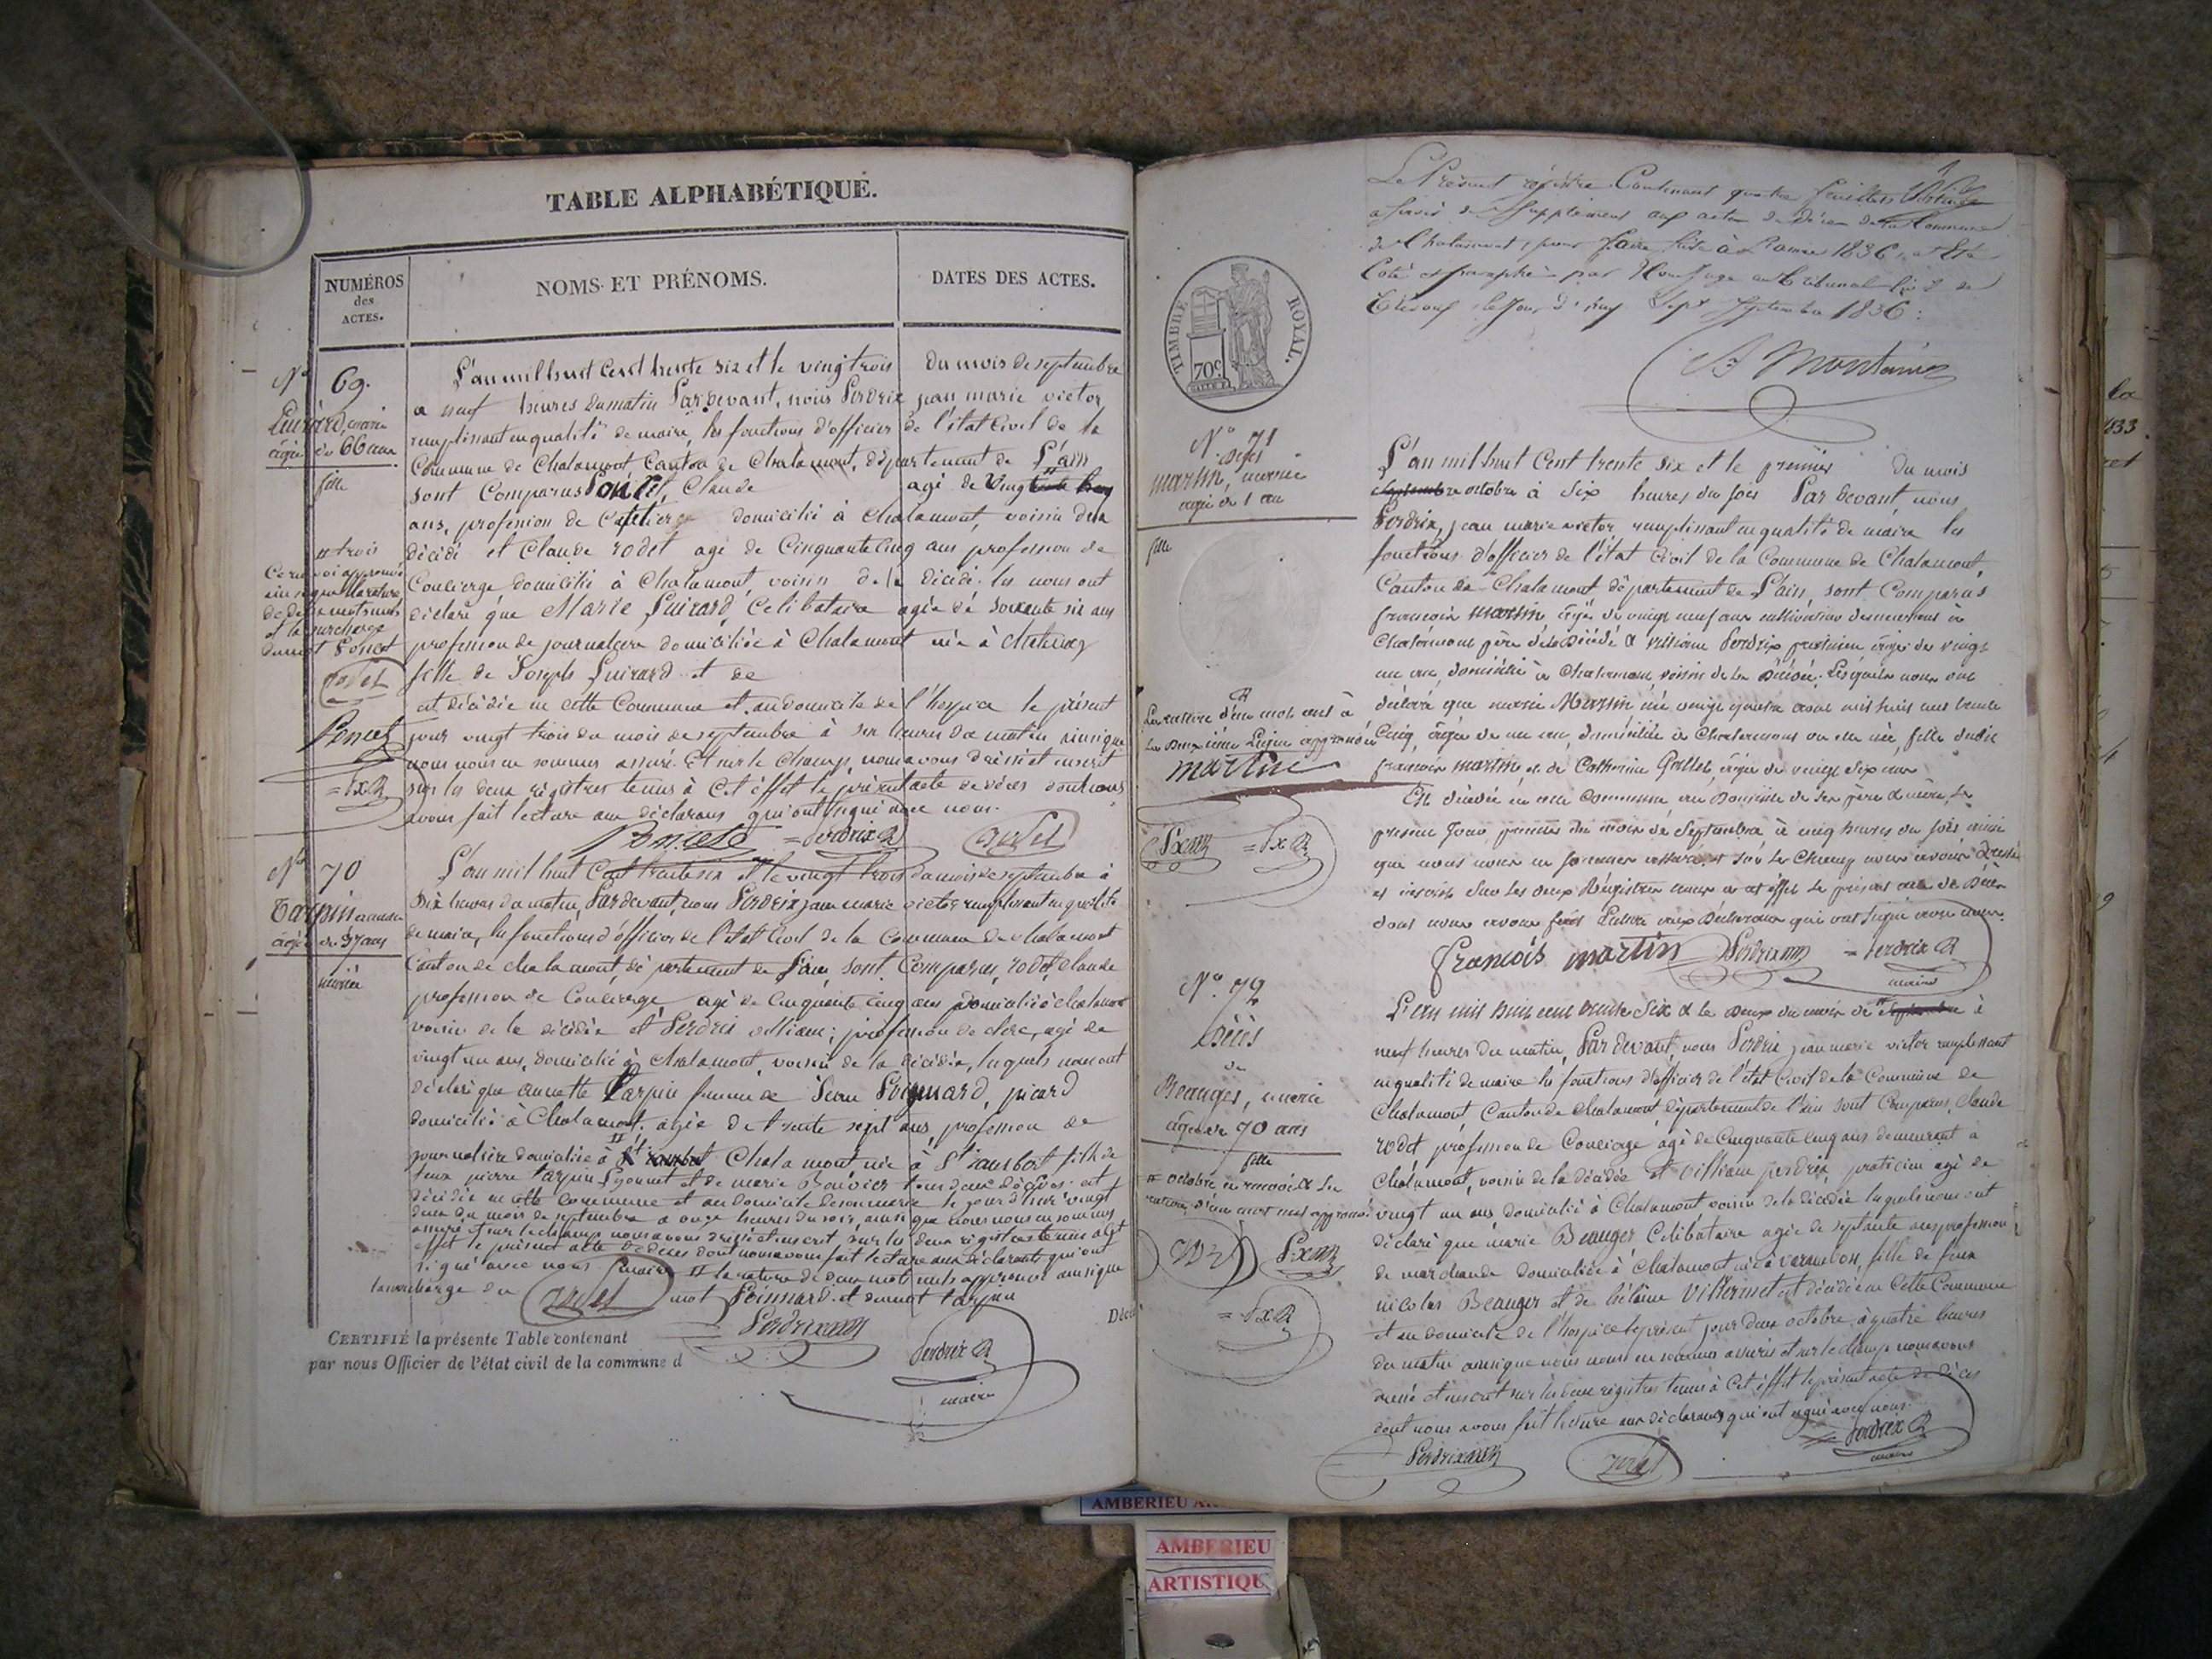 TABLE ALPHABÉTIQUE.
NUMÉROS
des
ACTES.
NOMS ET PRÉNOMS.
DATES DES ACTES.
N° 69.
âgée de 66 ans
fille
L'an mil huit cent trente six et le vingt trois du mois de septembre
a neuf heures du matin Par devant, nous Perdrix jean marie victor
remplissant en qualité de maire, les fonctions d'officier de l'état civil de la
Commune de Chalamont Canton de Chalamont, département de L'ain
sont Comparus Poncet, Claude agé de vingt
ans, profession de Cafetier domicilié à Chalamont, voisin de la
décédé et Claude rodet agé de Cinquante Cinq ans profession de
Concierge domicilié à Chalamont, voisin de la décédé. les nous ont
déclaré que Marie Guirard, Celibataire agée de soixante six ans
profession de journaliere domiciliée à Chalamont née à
fille de Joseph Guirard et de
est décédée en cette Commune et au domicile de l'hospice le présent
jour vingt trois du mois de septembre à six heures du matin ainsi que
nous nous en sommes assuré. Et sur le champ, nous avons dressé et inscrit
sur les deux régistres tenus à cet effet le présent acte de décès dont nous
avons fait lecture aux déclarans qui ont signé avec nous.
# trois
Ce renvoi approuvé
ainsi que la rature
de deux mots nuls
et la surcharge
du mot Poncet
rodet
Poncet
= Px R
Poncet = Perdrix R rodet
N° 70
Tarpin annette
âgée de 37 ans
mariée
L'an mil huit Cent trente six et le vingt trois du mois de septembre à
Dix heures du matin, Par devant, nous Perdrix jean marie victor remplissant en qualité
de maire, les fonctions d'officier de l'état Civil de la Commune de chalamont
Canton de chalamont, département de L'ain sont Comparus, rodet Claude
profession de Concierge agé de Cinquante Cinq ans domicilié à chalamont
voisin de la décédée et Perdrix villiame; profession de clerc, agé de
vingt un ans, domicilié à Chalamont, voisin de la décédée, lesquels nous ont
déclaré que annette Tarpin femme de Jean Poignard, picard
domicilié à Chalamont, agée de trente sept ans, profession de
journalière domiciliée à Chalamont née à St rambert fille de
feux pierre tarpin Lyonnet et de marie Bouvier tous deux décédés est
décédée en cette commune et au domicile de son marie le jour d'hier vingt
deux du mois de septembre a onze heures du soir, ainsi que nous nous en sommes
assuré et sur le champ nous avons dressé et inscrit sur les deux régistres tenus à cet
effet le présent acte de décès dont nous avons fait lecture aux déclarants qui ont
signé avec nous maire # la rature de deux mots nuls approuvée ainsi que
la surcharge du mot Poinnard et du mot tarpin
rodet
Perdrix
Perdrix R
maire
CERTIFIÉ la présente Table contenant
par nous Officier de l'état civil de la commune d
Décè
Le Présent régistre Contenant quatre feuillets
a servir de Supplément aux actes de décès de la Commune
de Chalamont, pour faire suite à l'année 1836, a été
Coté et paraphé par Nous Juge au tribunal Civil de
Trévoux le jour d'huy Sept Septembre 1836:
TIMBRE ROYAL.
70c
N° 71
Décès
martin, marie
agée de 1 an
fille
L'an mil huit Cent trente six et le premier du mois
octobre à six heures du soir Par devant, nous
Perdrix, jean marie victor remplissant en qualité de maire les
fonctions d'officier de l'état Civil de la Commune de Chalamont,
Canton de Chalamont département de L'ain, sont Comparus
françois martin, âgé de vingt neuf ans cultivateur demeurant à
Chalamont père de la décédé & villiame Perdrix praticien âgé de vingt
un an, domicilié à Chalamont voisin de la Décédée. Lesquels nous ont
déclaré que marie Martin née vingt quatre aout mil huit cent trente
Cinq, âgée de un an, domiciliée à Chalamont ou elle née, fille dudit
françois martin, et de Catherine Gollet, âgée de vingt six ans
Est décédée en cette Commune au domicile de ses père & mère, le
présent jour premier du mois de Septembre à cinq heures du soir ainsi
que nous nous en sommes assuré. Et sur le Champ nous avons dressé
et inscrit sur les deux Régistres tenus à cet effet le présent acte de Décès
dont nous avons fait Lecture aux Déclarans qui ont signé avec nous.
La rature d'un mot nul à
la deuxième Ligne approuvée
martin
Px
= Px R
françois martin Perdrix = Perdrix R
maire
N° 72
Décès
de
Beauger, marie
âgée de 70 ans
fille
# octobre en renvoi & la
rature d'un mot nul approuvé
rodet
Px
= Px R
L'an mil huit cent trente Six & le deux du mois de # à
neuf heures du matin, Par devant, nous Perdrix jean marie victor remplissant
en qualité de maire les fonctions d'officier de l'état Civil de la Commune de
Chalamont Canton de Chalamont, département de l'ain sont Comparus, Claude
rodet profession de Concierge agé de Cinquante cinq ans demeurant à
Chalamont, voisin de la décédée et villiame perdrix, praticien agé de
vingt un ans domicilié à Chalamont voisin de la décédée lesquels nous ont
déclaré que marie Beauger Celibataire agée de septante ans profession
de marchande domiciliée à Chalamont née à varambon, fille de feux
nicolas Beauger et de hélaine Villerinet est décédée en Cette Commune
et au domicile de l'hospice le présent jour deux octobre, à quatre heures
du matin ainsi que nous nous en sommes assurés et sur le champ nous avons
dressé et inscrit sur les deux régistres tenus à Cet effet le présent acte de décès
dont nous avons fait lecture aux déclarans qui ont signé avec nous.
Perdrix rodet = Perdrix R
maire
AMBERIEU
AMBERIEU
ARTISTIQU